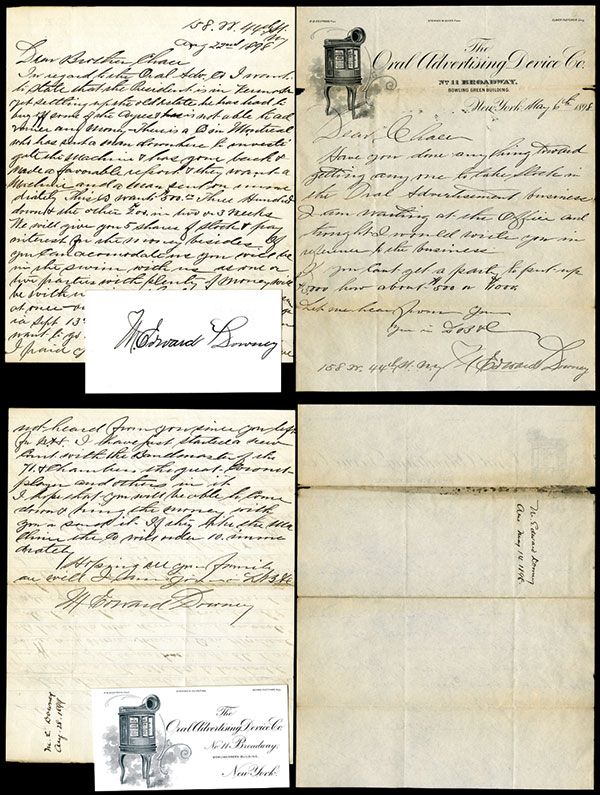 158. W. 44th St.
N.Y.
Aug 22nd 1898
Dear Brother Chace
In regard to the Oral Adv. Co I want
to state that the President is in
get settling up the old estate he has had to
buy of some of the and is not able to ad
any Money. There is a Co in Montreal
who has sent a man down here to investi
gate the Machine & has gone back &
made a favorable report & they want a
Machine and a man sent on imme
diately. This Co want 500.00 Three Hundred
down & the other 200. in two or 3 Weeks
We will give you 5 shares of stock & pay
interest for the money besides. If
you can accomodate us you will be
in the swim with us as one or
two parties with plenty of money will
be with
at once
in Sept 13
want to go
I paid
W. Edward Downey
P.R. President
The
Oral Advertising Device Co.
No 11 BROADWAY.
BOWLING GREEN BUILDING.
New York. May 6th 1898
Dear Chace
Have you done anything toward
getting any one to take stock in
the Oral Advertisement business
I am waiting at the Office and
thought I would write you in
reference to the business
If you can't get a party to put up
how about $500 or $1000
Let me hear from you
You in
158 W. 44th St. N.Y. W Edward Downey
not heard from you since you left
for N.H. I have just started a new
Band with the Bandmaster of the
71. & Chambers the great Cornet
player and others in it.
I hope that you will be able to come
down & bring the money with
you or send it. If they like the Ma
chine the Co will order 10. imme
diately
Hoping all your family
are well I am yours
W Edward Downey
W. E. Downey
Aug 22. 1898
The
Oral Advertising Device Co.
No. 11 Broadway,
BOWLING GREEN BUILDING.
New York.
W. Edward Downey
Ans May 12. 1898